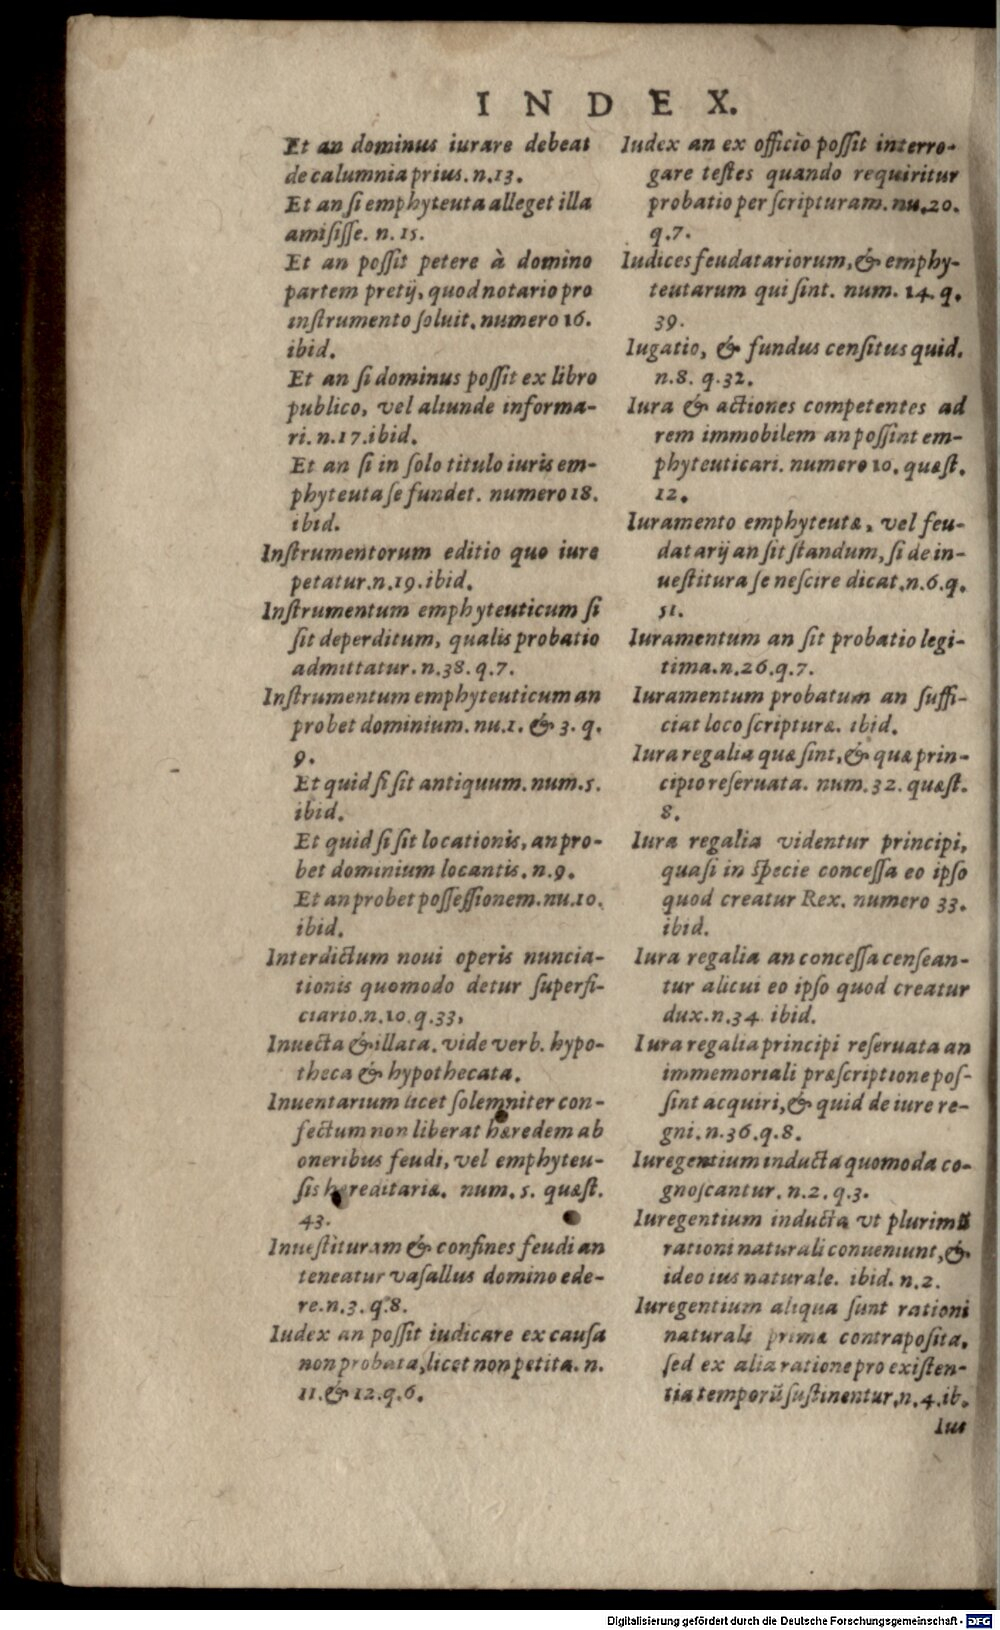 INDEX.
Et an dominus iurare debeat
de calumnia prius. n.13.
Et an ſi emphyteuta alleget illa
amiſiſſe. n. 15.
Et an poſſit petere à domino
partem pretij, quod notario pro
inſtrumento ſoluit. numero 16.
ibid.
Et an ſi dominus poſſit ex libro
publico, vel aliunde informa-
ri. n.17.ibid.
Et an ſi in ſolo titulo iuris em-
phyteuta ſe fundet. numero 18.
ibid.
Inſtrumentorum editio quo iure
petatur.n.19.ibid.
Inſtrumentum emphyteuticum ſi
ſit deperditum, qualis probatio
admittatur. n.38. q.7.
Inſtrumentum emphyteuticum an
probet dominium. nu.1. & 3. q.
9.
Et quid ſi ſit antiquum. num.5.
ibid.
Et quid ſi ſit locationis, an pro-
bet dominium locantis. n.9.
Et an probet poſſeſſionem.nu.10.
ibid.
Interdictum noui operis nuncia-
tionis quomodo detur ſuperfi-
ciario.n.10.q.33,
Inuecta & illata. vide verb. hypo-
theca & hypothecata.
Inuentarium licet ſolemniter con-
fectum non liberat hæredem ab
oneribus feudi, vel emphyteu-
ſis hereditariæ. num. 5. quæſt.
43.
Inueſtituram & confines feudi an
teneatur vaſallus domino ede-
re.n.3. q.8.
Iudex an poſſit iudicare ex cauſa
non probata, licet non petita. n.
11.& 12.q.6.
Iudex an ex officio poſſit interro-
gare teſtes quando requiritur
probatio per ſcripturam. nu.20.
q.7.
Iudices feudatariorum, & emphy-
teutarum qui ſint. num. 14. q.
39.
Iugatio, & fundus cenſitus quid.
n.8. q.32.
Iura & actiones competentes ad
rem immobilem an poſſint em-
phyteuticari. numero 10. quæſt.
12.
Iuramento emphyteutæ, vel feu-
datarij an ſit ſtandum, ſi de in-
ueſtitura ſe neſcire dicat.n.6.q.
51.
Iuramentum an ſit probatio legi-
tima.n.26.q.7.
Iuramentum probatum an ſuffi-
ciat loco ſcripturæ. ibid.
Iura regalia quæ ſint, & quæ prin-
cipio reſeruata. num. 32. quæſt.
8.
Iura regalia videntur principi,
quaſi in ſpecie conceſſa eo ipſo
quod creatur Rex. numero 33.
ibid.
Iura regalia an conceſſa cenſean-
tur alicui eo ipſo quod creatur
dux.n.34. ibid.
Iura regalia principi reſeruata an
immemoriali præſcriptione poſ-
ſint acquiri, & quid de iure re-
gni. n.36.q.8.
Iuregentium inducta quomoda co-
gnoſcantur. n.2. q.3.
Iuregentium inducta vt plurimũ
rationi naturali conueniunt, &
ideo ius naturale. ibid. n.2.
Iuregentium aliqua ſunt rationi
naturali primæ contrapoſita,
ſed ex alia ratione pro exiſten-
tia temporũ ſuſtinentur.n.4.ib.
Ius
Digitalisierung gefördert durch die Deutsche Forschungsgemeinschaft - DFG